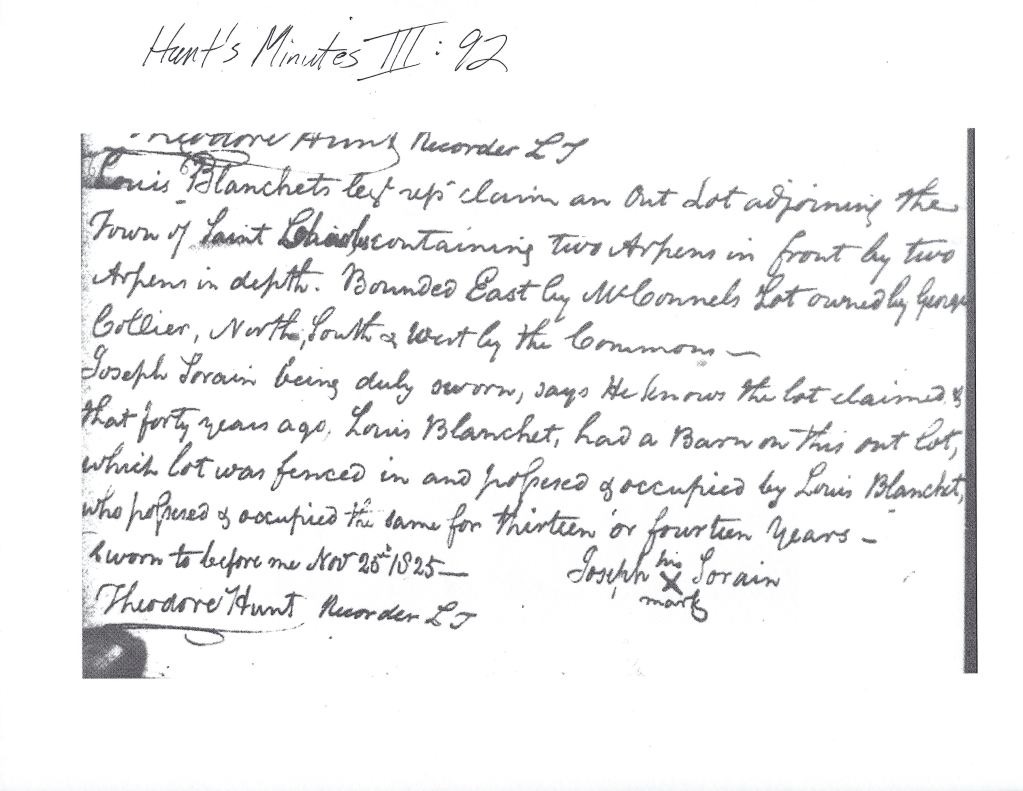 Hunt's Minutes III: 92
Theodore Hunt Recorder L T
Louis Blanchets leg^l rep^s claim an Out Lot adjoining the
Town of Saint Charles containing two Arpens in front by two
Arpens in depth. Bounded East by McConnels Lot owned by George
Collier, North, South & West by the Commons —
Joseph Lorain being duly sworn, says He knows the lot claimed &
that forty years ago, Louis Blanchet, had a Barn on this out lot,
which lot was fenced in and possesed & occupied by Louis Blanchet,
who possesed & occupied the same for thirteen or fourteen Years —
Sworn to before me Nov^r 25^th 1825 —
Joseph his X mark Lorain
Theodore Hunt Recorder L T